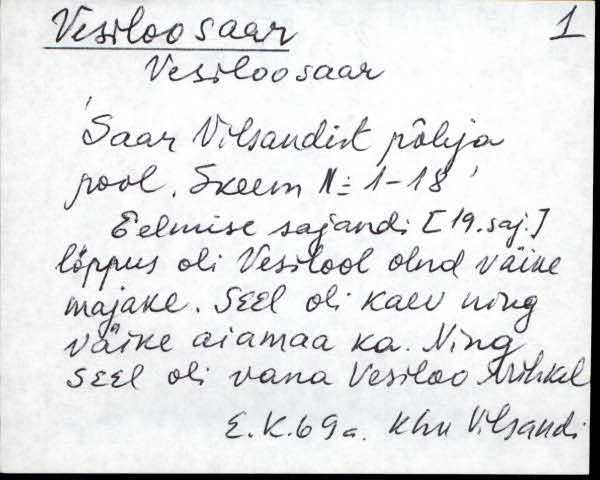 Vesiloo saar 1
Vesiloosaar
'Saar Vilsandist põhja
pool. Skeem N: 1-18'
Eelmise sajandi [19. saj.]
lõppus oli Vesilool olnd väike
majake. Seel oli kaev ning
väike aiamaa ka. Ning
seel oli vana Vesiloo Mihkel
E.K. 69 a. Khn Vilsandi